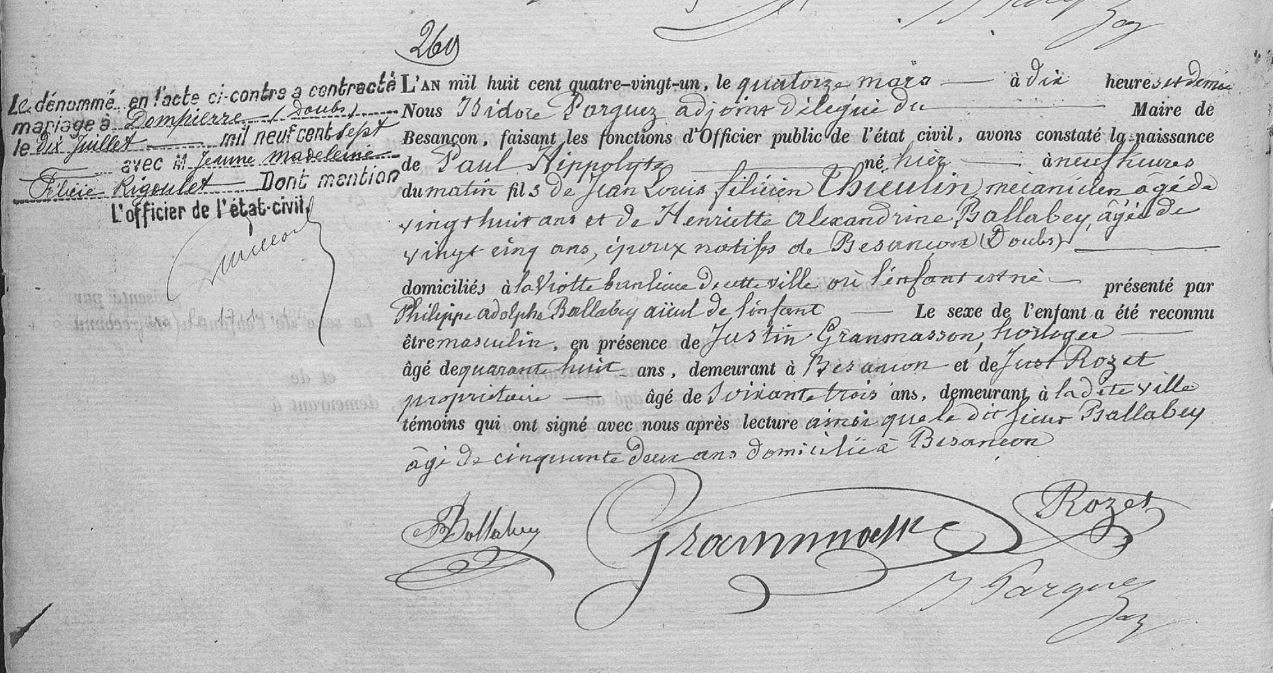 260
Le dénommé en l'acte ci-contre a contracté
mariage à Dompierre (Doubs)
le dix Juillet mil neuf cent sept
avec M Jeanne Madeleine
Félicie Rigoulet Dont mention
L'officier de l'état-civil
L'AN mil huit cent quatre-vingt-un, le quatorze mars à dix heures et demie
Nous Isidore Parguez adjoint délégué du Maire de
Besançon, faisant les fonctions d'Officier public de l'état civil, avons constaté la naissance
de Paul Hippolyte né hier à neuf heures
du matin fils de Jean Louis félicien Thieulin, mécanicien âgé de
vingt huit ans et de Henriette Alexandrine Ballabey, âgée de
vingt cinq ans, époux natifs de Besançon (Doubs)
domiciliés à la Viotte banlieue de cette ville où l'enfant est né présenté par
Philippe Adolphe Ballabey aïeul de l'enfant Le sexe de l'enfant a été reconnu
être masculin, en présence de Justin Grammasson, horloger
âgé de quarante huit ans, demeurant à Besançon et de Just Rozet
propriétaire âgé de soixante trois ans, demeurant à la dite ville
témoins qui ont signé avec nous après lecture ainsi que le dit sieur Ballabey
âgé de cinquante deux ans domicilié à Besançon
Ballabey
Rozet
I Parguez